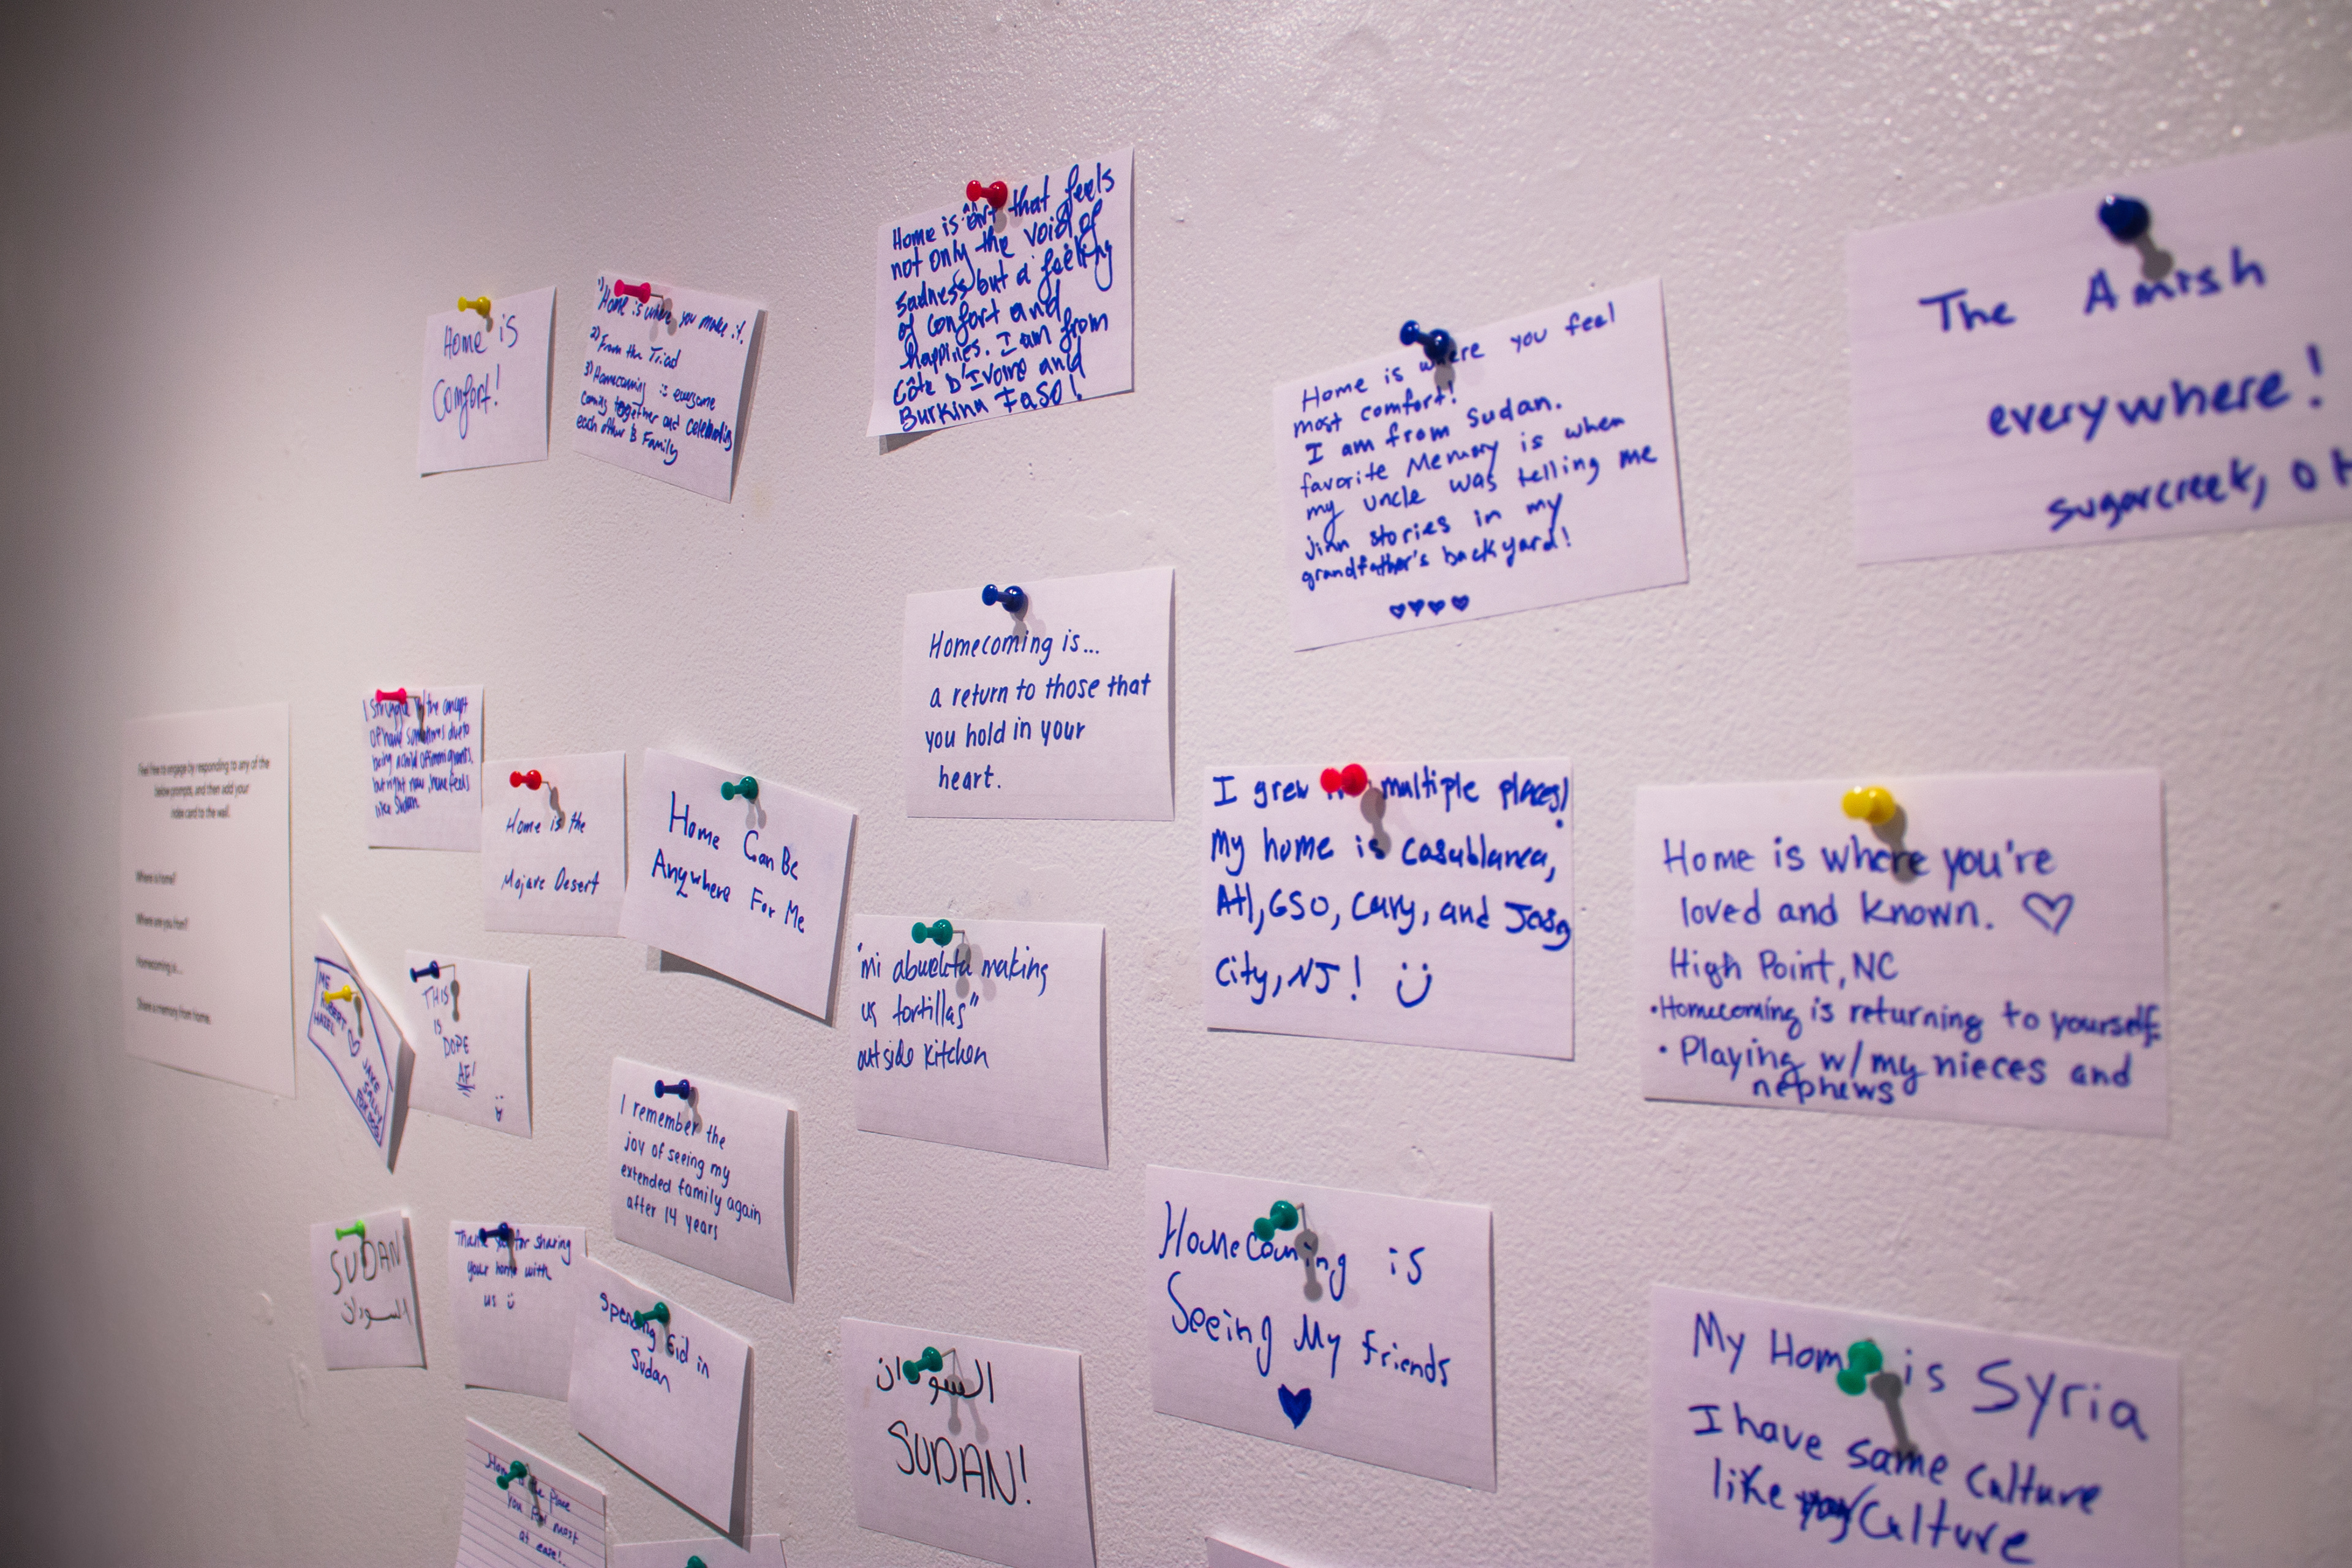 Feel free to engage by responding to any of the
below prompts, and then add your
index card to the wall.
Where is home?
Where are you from?
Homecoming is...
Share a memory from home.
Home is
Comfort!
1) Home is where you make it.
2) From the Triad
3) Homecoming is everyone
coming together and celebrating
each other & Family
Home is art that feels
not only the void of
sadness but a feeling
of comfort and
happines. I am from
Côte D'Ivoire and
Burkina Faso!
Home is where you feel
most comfort!
I am from Sudan.
favorite Memory is when
my uncle was telling me
jinn stories in my
grandfather's backyard!
The Amish
everywhere!
sugarcreek, OH
I struggle w/ the concept
of home sometimes due to
being a child of immigrants,
but right now, home feels
like Sudan
Home is the
Mojave Desert
Home Can Be
Anywhere For Me
Homecoming is...
a return to those that
you hold in your
heart.
I grew multiple places!
My home is Casablanca,
Atl, GSO, Cary, and
City, NJ!
Home is where you're
loved and known.
High Point, NC
•Homecoming is returning to yourself
• Playing w/my nieces and
nephews
ME
ROBERT
HAZEL
JAKE
SALLY
THIS
IS
DOPE
AF!
"mi abuelita making
us tortillas"
outside kitchen
I remember the
joy of seeing my
extended family again
after 14 years
SUDAN
السودان
Thank you for sharing
your home with
us
Spending Eid in
Sudan
السودان
SUDAN!
Homecoming is
Seeing My friends
My Home is Syria
I have same Culture
like Culture
Home is the place
you feel most
at ease!